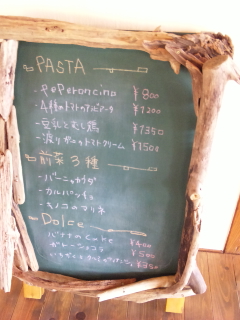 PASTA
- Peperoncino ¥800
- 4種のトマトのアラビアータ ¥1200
- 豆乳とむし鶏 ¥1350
- 渡りガニのトマトクリーム ¥1500
前菜3種
- バーニャカウダ
- カルパッチョ
- キノコのマリネ
Dolce
バナナのCake ¥400
ガトーショコラ ¥500
¥350